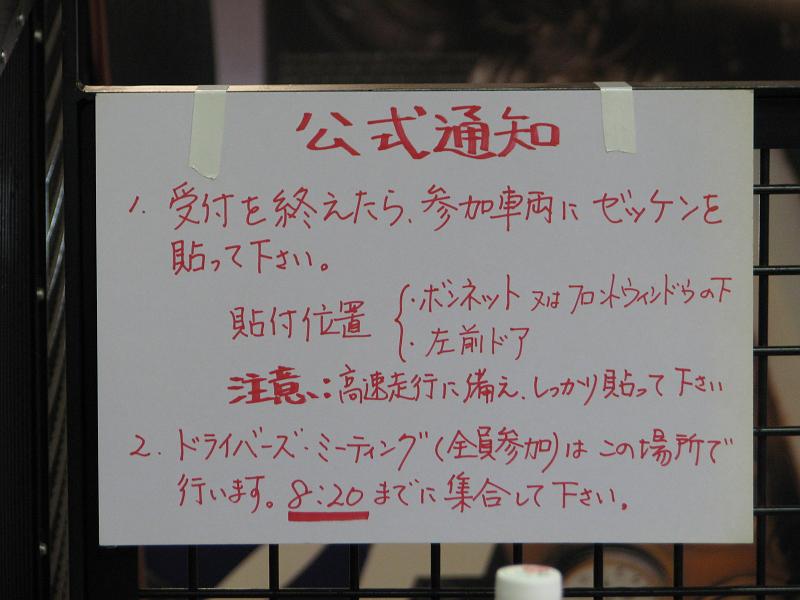 公式通知
1. 受付を終えたら、参加車両にゼッケンを
貼って下さい。
貼付位置
・ボンネット 又は フロントウィンドウの下
・左前ドア
注意：高速走行に備え、しっかり貼って下さい
2. ドライバーズ・ミーティング(全員参加)はこの場所で
行います。8:20までに集合して下さい。